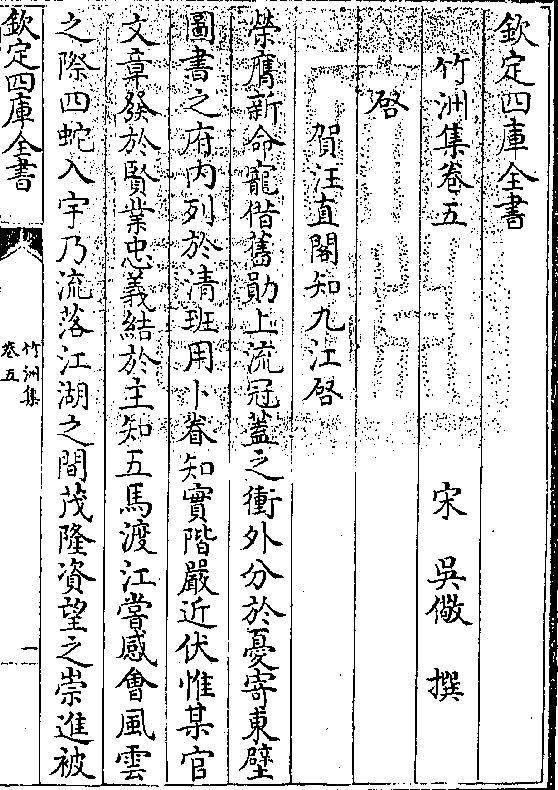 欽定四庫全書
竹洲集卷五
宋 吳儆 撰
啓
賀汪直閣知九江啓
榮膺新命寵偕舊勛上流冠蓋之衝外分於憂寄東壁
圖書之府内列於清班用卜眷知實階嚴近伏惟某官
文章發於賢業忠義結於主知五馬渡江嘗感會風雲
之際四蛇入宇乃流落江湖之間茂隆資望之崇進被
欽定四庫全書
竹洲集
卷五
一